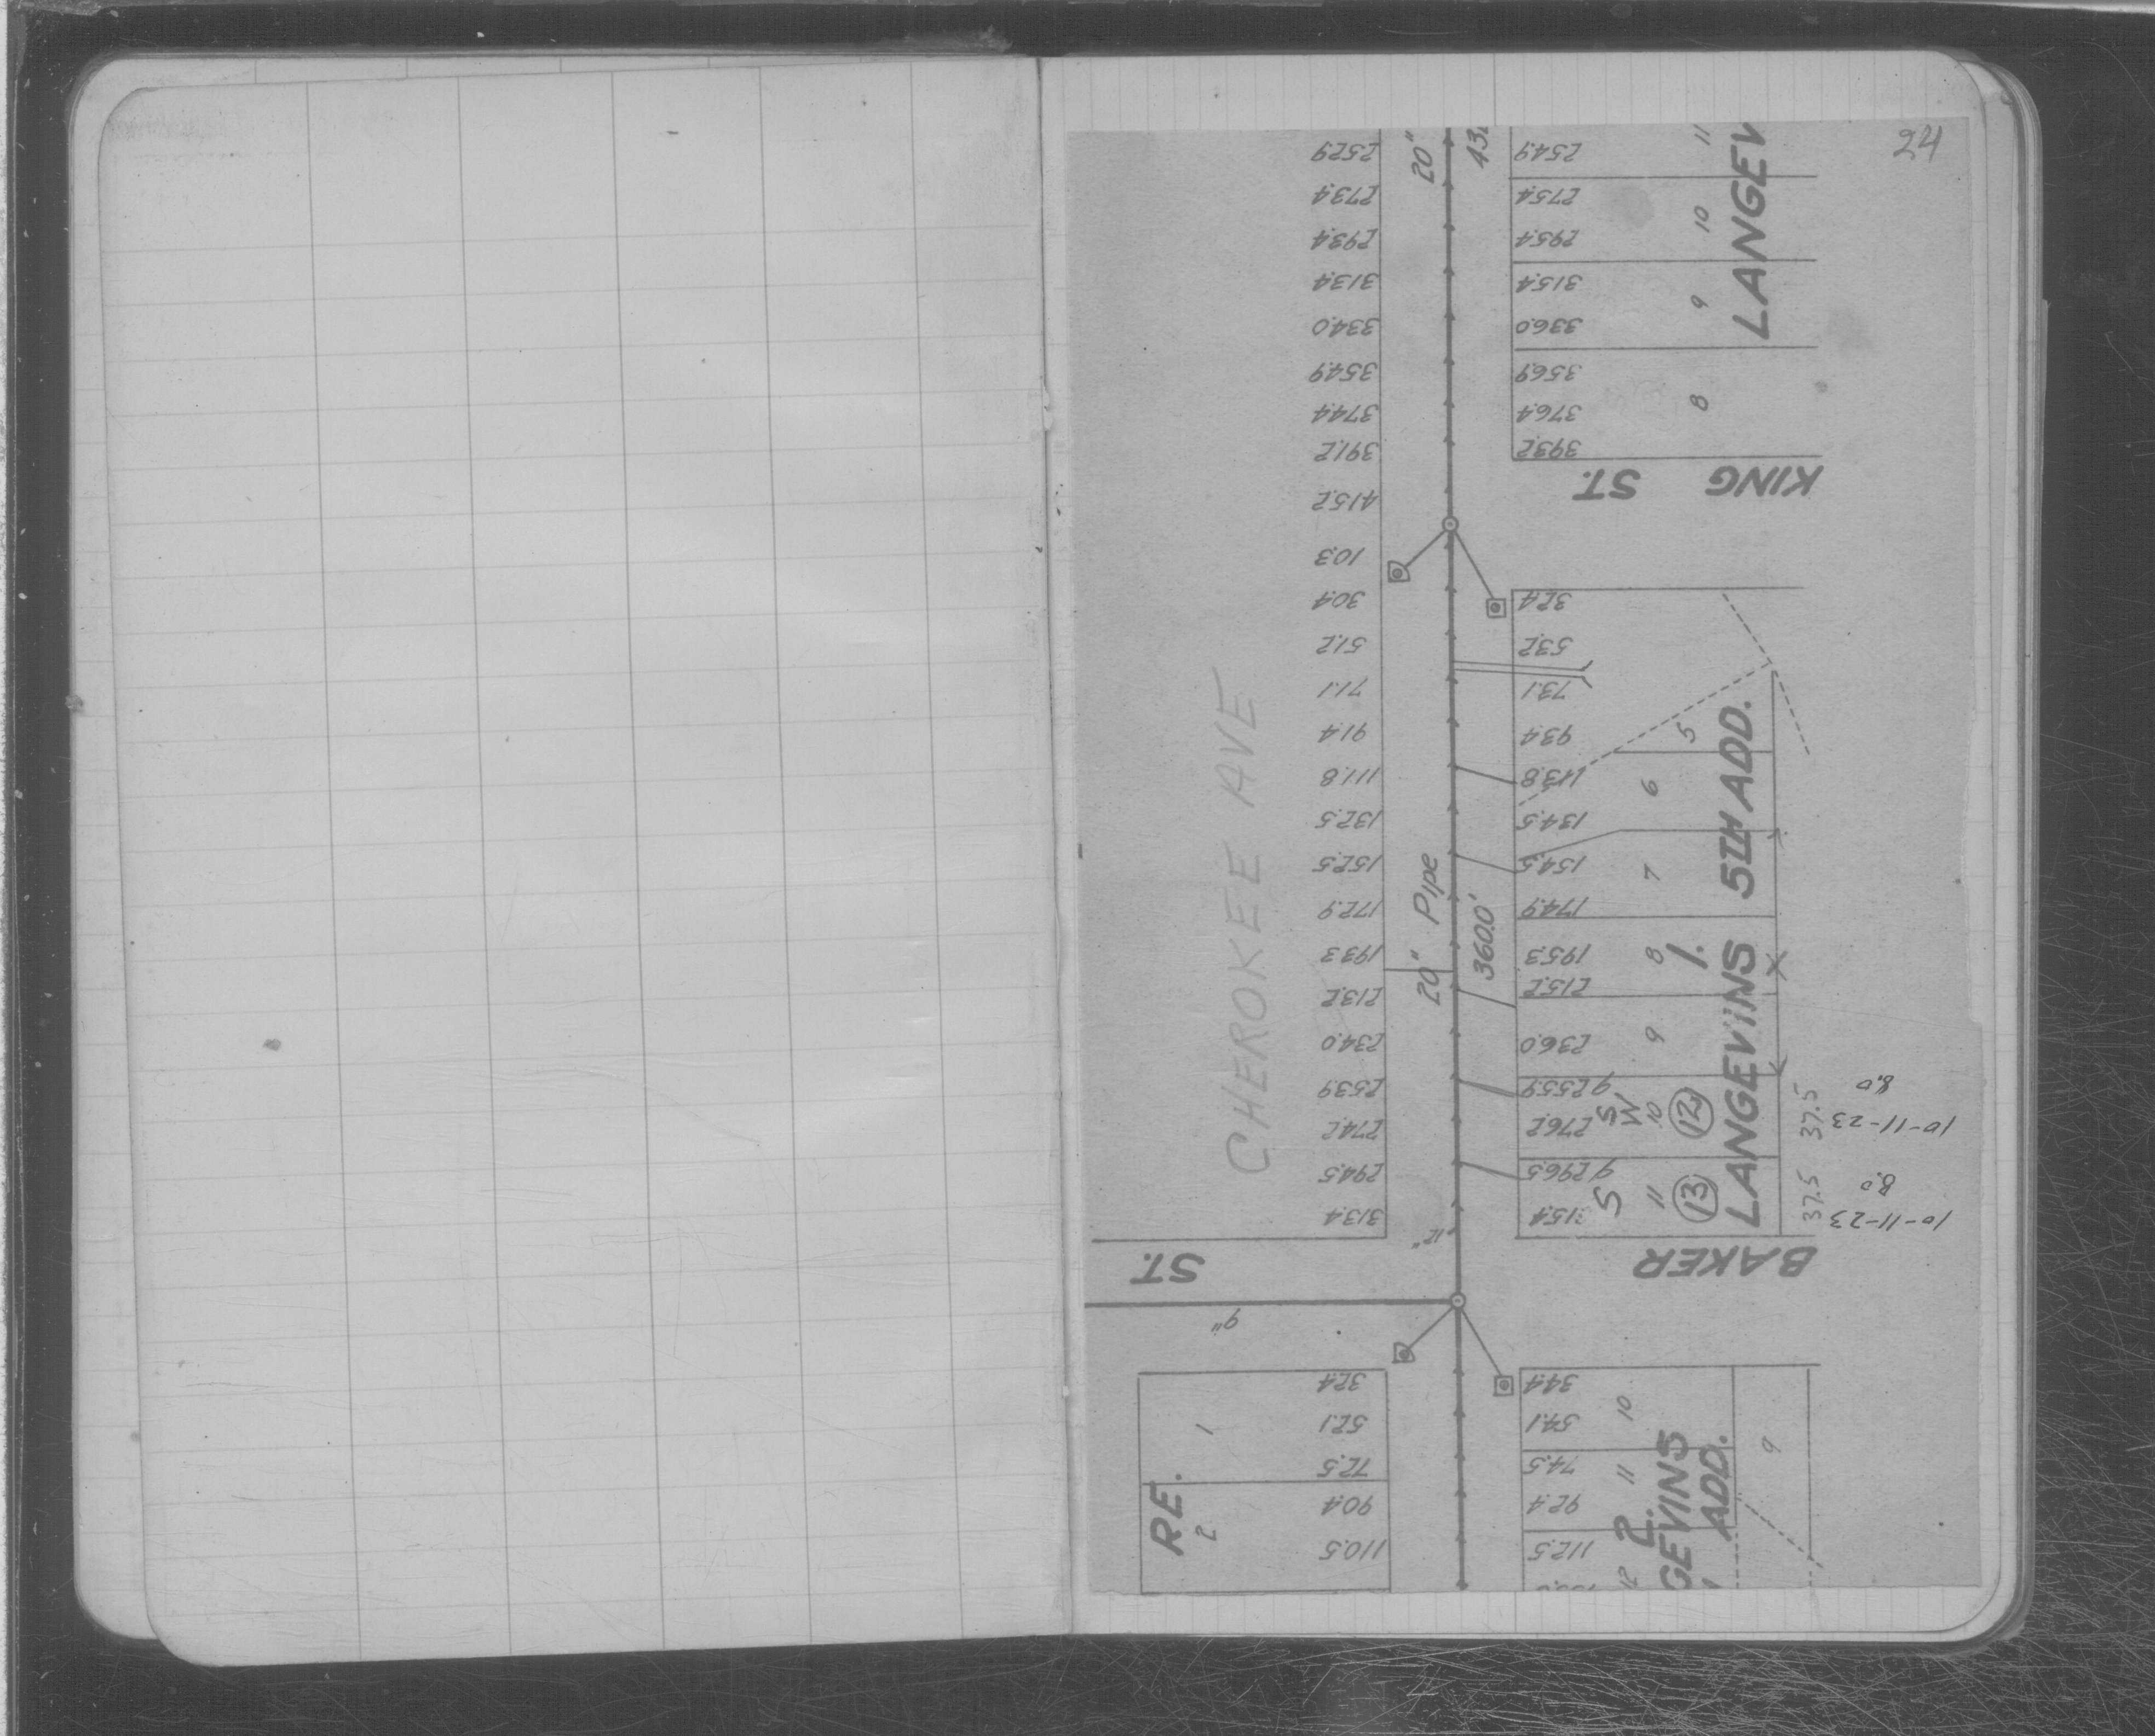 24
252.9
273.4
293.4
313.4
334.0
354.9
374.4
391.2
415.2
10.3
30.4
51.2
71.1
91.4
111.8
132.5
152.5
172.9
193.3
213.2
234.0
253.9
274.2
294.5
313.4
20"
254.9
275.4
295.4
315.4
336.0
356.9
376.4
393.2
11
10
9
8
LANGEV
KING ST.
32.4
53.2
73.1
93.4
113.8
134.5
154.5
174.9
195.3
215.2
236.0
255.9
276.2
296.5
315.4
5
6
7
8
9
10
11
S
W
S
12
13
1.
LANGEVINS 5TH ADD.
CHEROKEE AVE
20" Pipe
360.0'
12"
37.5
8.0
10-11-23
37.5
8.0
10-11-23
BAKER ST.
9"
32.4
52.1
72.5
90.4
110.5
1
2
RE.
34.4
54.1
74.5
92.4
112.5
10
11
12
2.
GEVINS
ADD.
9